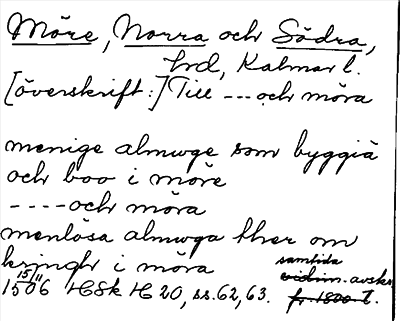 Möre, Norra och Södra,
hrd, Kalmar l.
[överskrift:] Till ---och möra
menige almwge som byggiä
och boo i möre
----och möra
menlösa almwga ther om
kringh i möra
15/11 samtida
1506 HSk H 20, ss. 62, 63. vidim. avskr. fr. 1800-t.